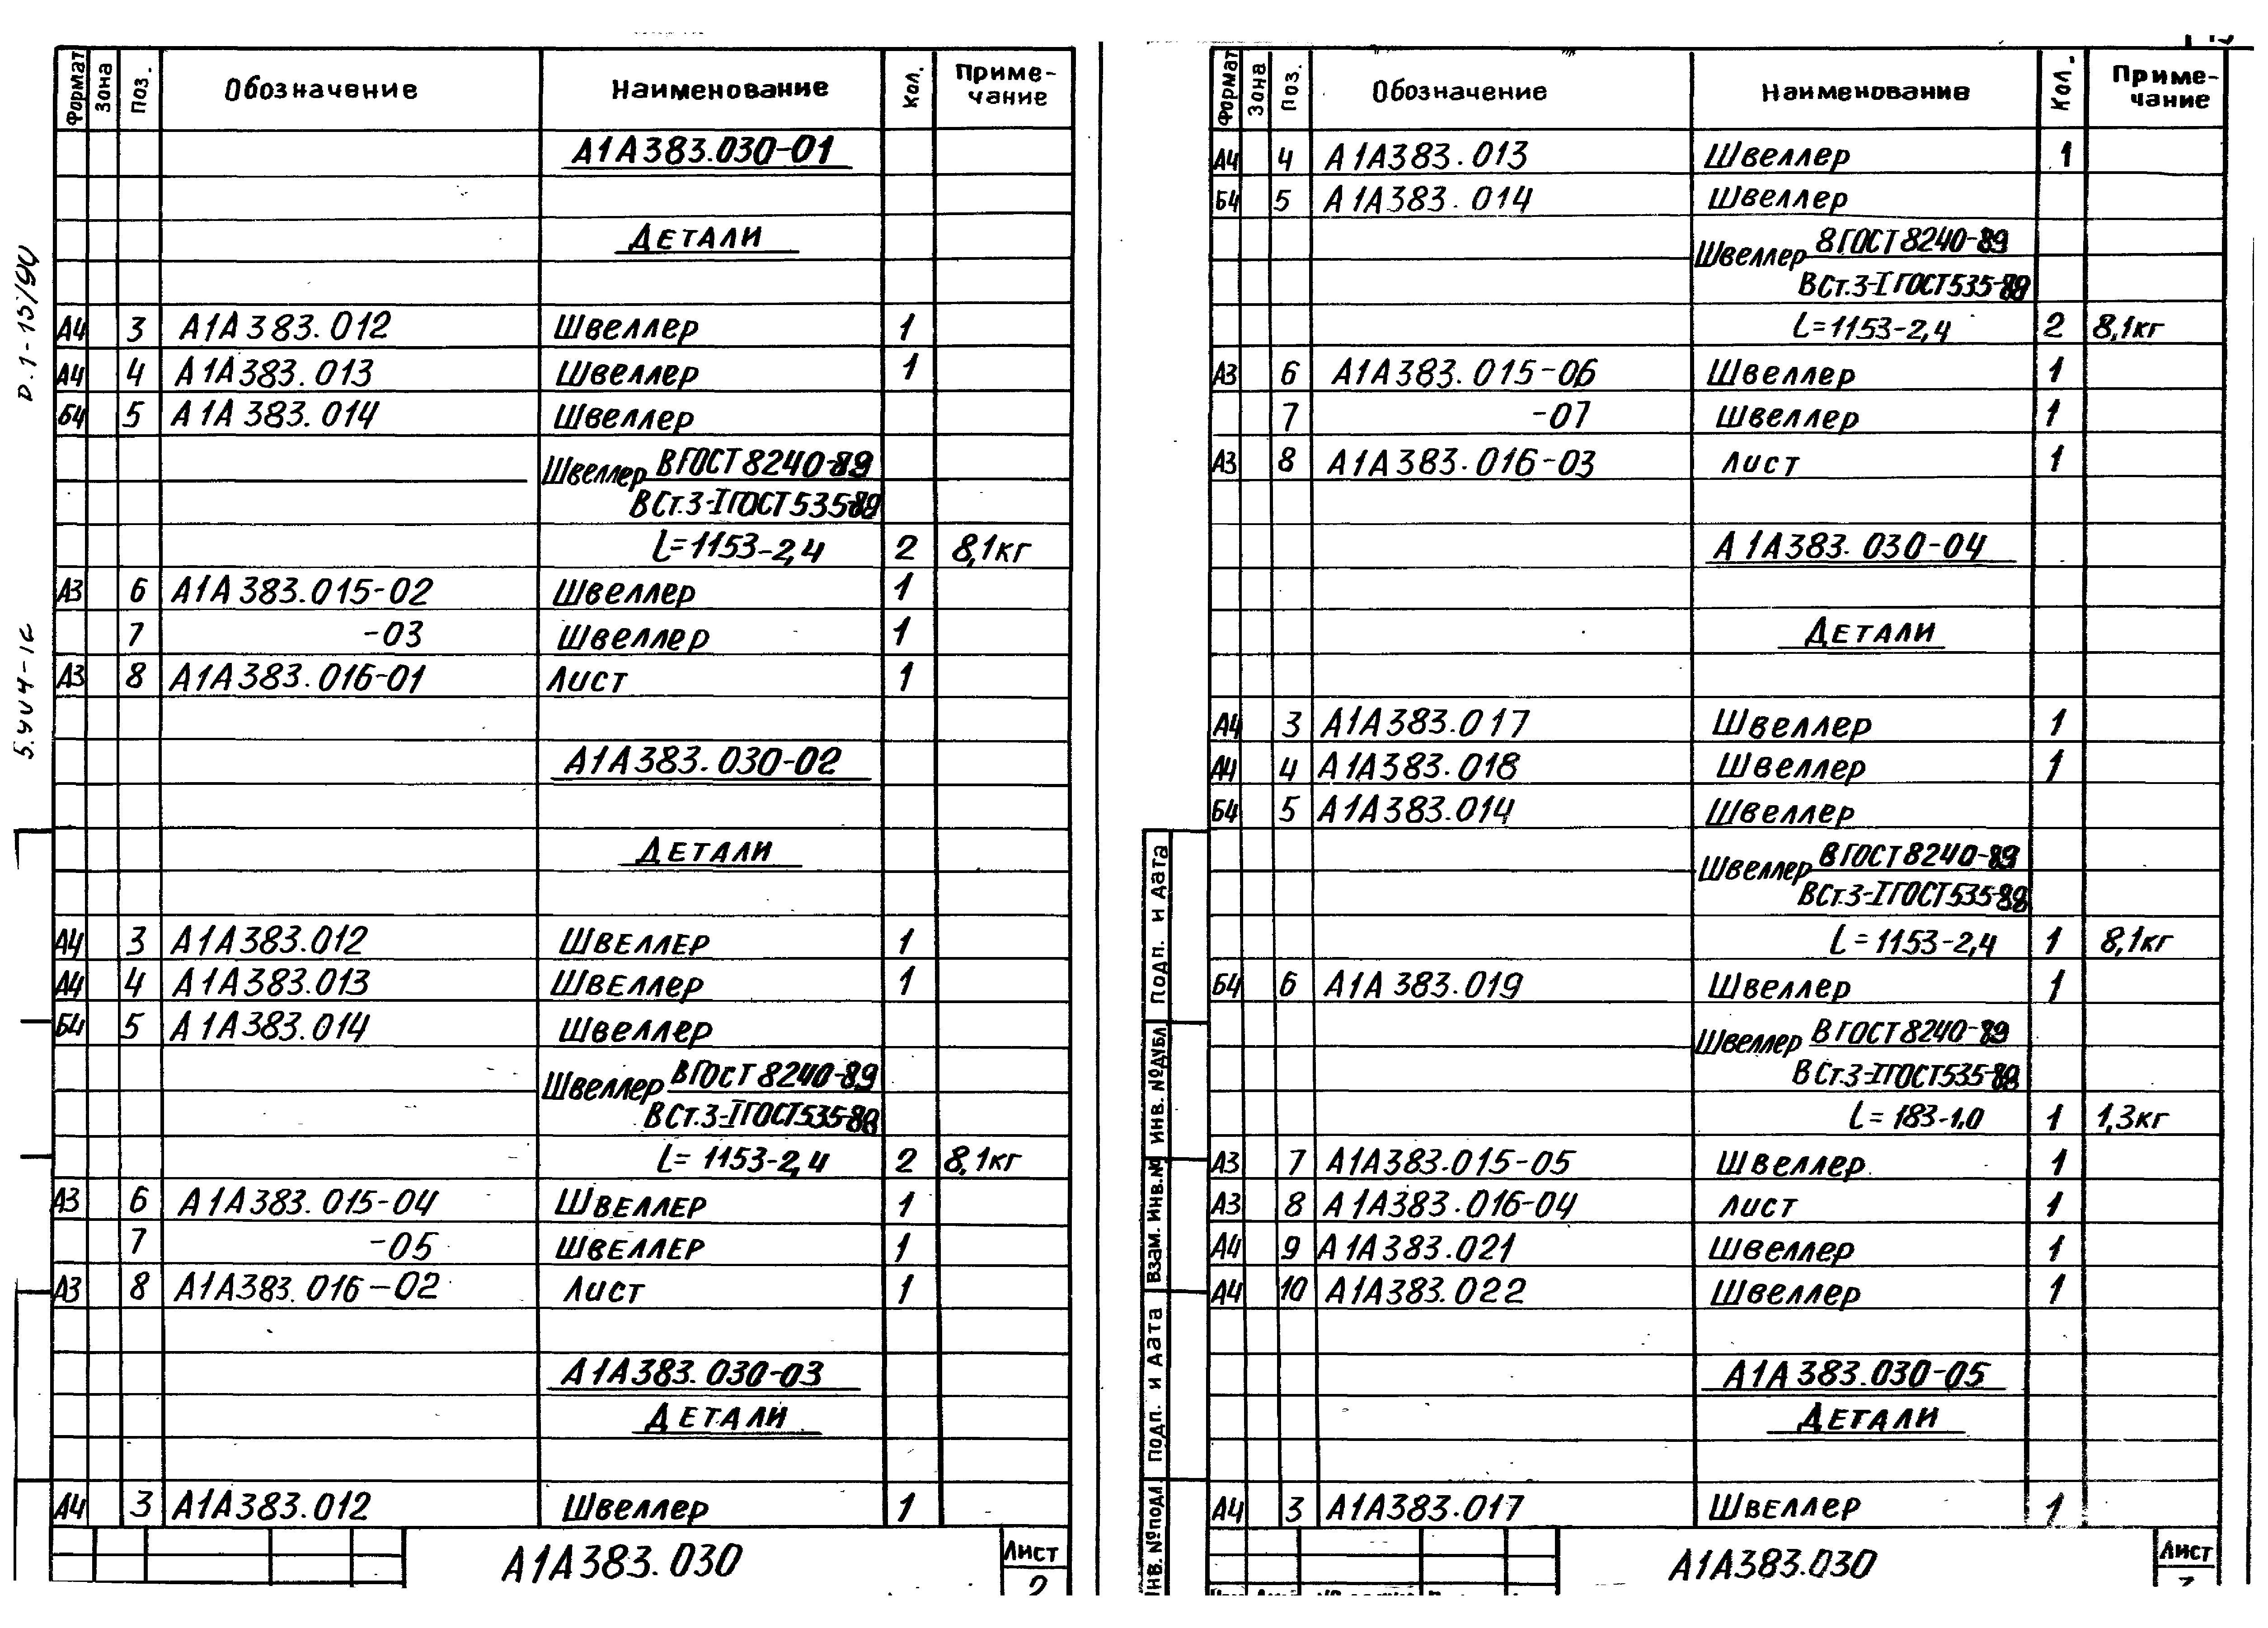 Формат Зона Поз. Обозначение Наименование Кол. Приме-
чание
А1А383.030-01
Детали
А4 3 А1А383.012 Швеллер 1
А4 4 А1А383.013 Швеллер 1
Б4 5 А1А383.014 Швеллер
Швеллер В ГОСТ 8240-89
ВСт.3-I ГОСТ 535-89
L=1153-2,4 2 8,1кг
А3 6 А1А383.015-02 Швеллер 1
7 -03 Швеллер 1
А3 8 А1А383.016-01 Лист 1
А1А383.030-02
Детали
А4 3 А1А383.012 Швеллер 1
А4 4 А1А383.013 Швеллер 1
Б4 5 А1А383.014 Швеллер
Швеллер В ГОСТ 8240-89
ВСт.3-I ГОСТ 535-88
L=1153-2,4 2 8,1кг
А3 6 А1А383.015-04 Швеллер 1
7 -05 Швеллер 1
А3 8 А1А383.016-02 Лист 1
А1А383.030-03
Детали
А4 3 А1А383.012 Швеллер 1
А1А383.030
Лист
2
Формат Зона Поз. Обозначение Наименование Кол. Приме-
чание
А4 4 А1А383.013 Швеллер 1
Б4 5 А1А383.014 Швеллер
Швеллер 8 ГОСТ 8240-89
ВСт.3-I ГОСТ 535-89
L=1153-2,4 2 8,1кг
А3 6 А1А383.015-06 Швеллер 1
7 -07 Швеллер 1
А3 8 А1А383.016-03 Лист 1
А1А383.030-04
Детали
А4 3 А1А383.017 Швеллер 1
А4 4 А1А383.018 Швеллер 1
Б4 5 А1А383.014 Швеллер
Швеллер В ГОСТ 8240-89
ВСт.3-I ГОСТ 535-88
L=1153-2,4 1 8,1кг
Б4 6 А1А383.019 Швеллер 1
Швеллер В ГОСТ 8240-89
ВСт.3-I ГОСТ 535-88
L=183-1,0 1 1,3кг
А3 7 А1А383.015-05 Швеллер 1
А3 8 А1А383.016-04 Лист 1
А4 9 А1А383.021 Швеллер 1
А4 10 А1А383.022 Швеллер 1
А1А383.030-05
Детали
А4 3 А1А383.017 Швеллер 1
А1А383.030
Лист
Подп. и дата
Инв. №дубл
Взам. Инв.№
Подп. и дата
Инв. №подл